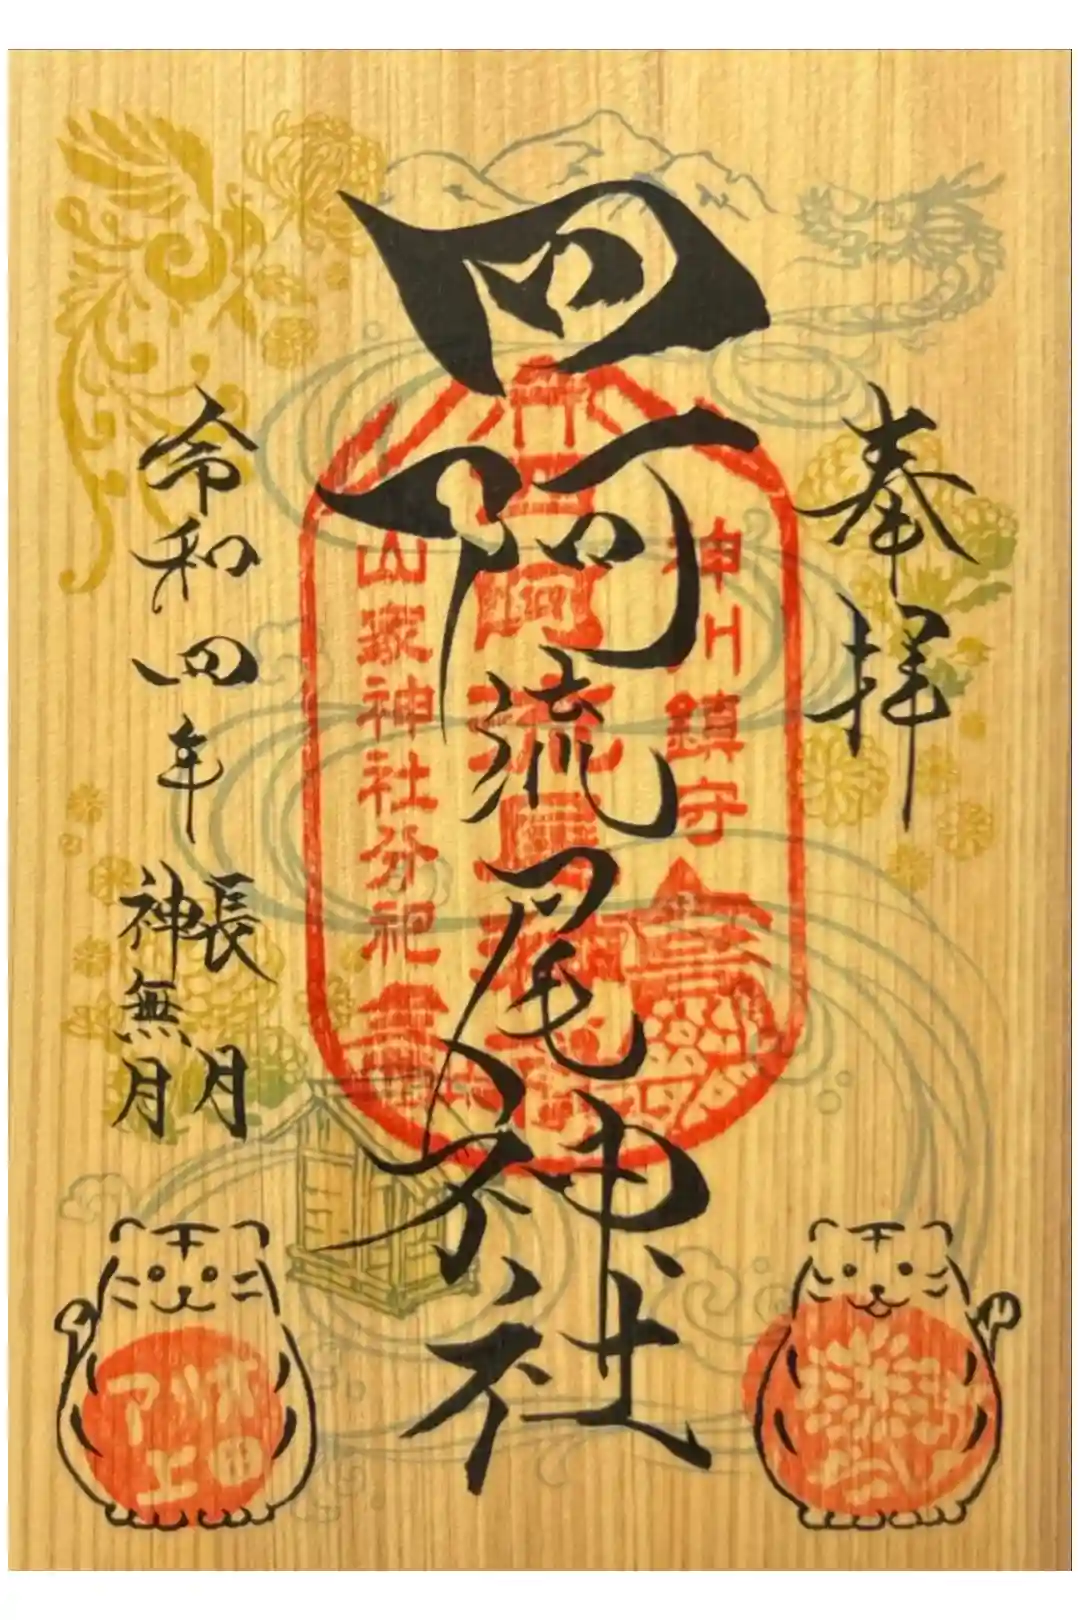 奉拝
神川鎮守
四阿流尾神社
山家神社分祀
令和四年
長月
神無月
上田